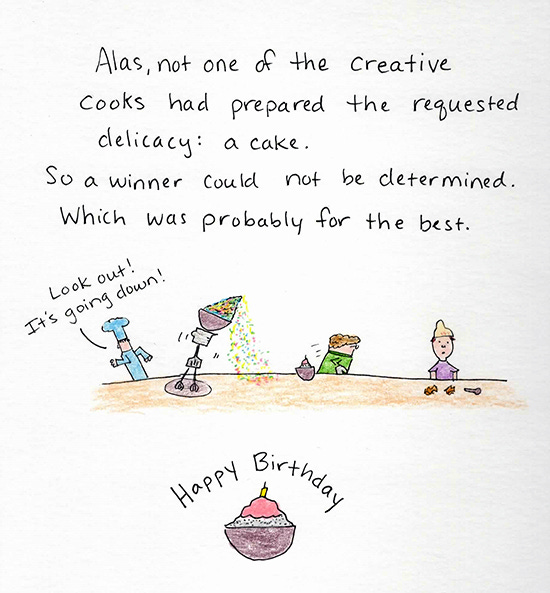 Alas, not one of the creative
cooks had prepared the requested
delicacy: a cake.
So a winner could not be determined.
Which was probably for the best.
Look out!
It's going down!
Happy Birthday